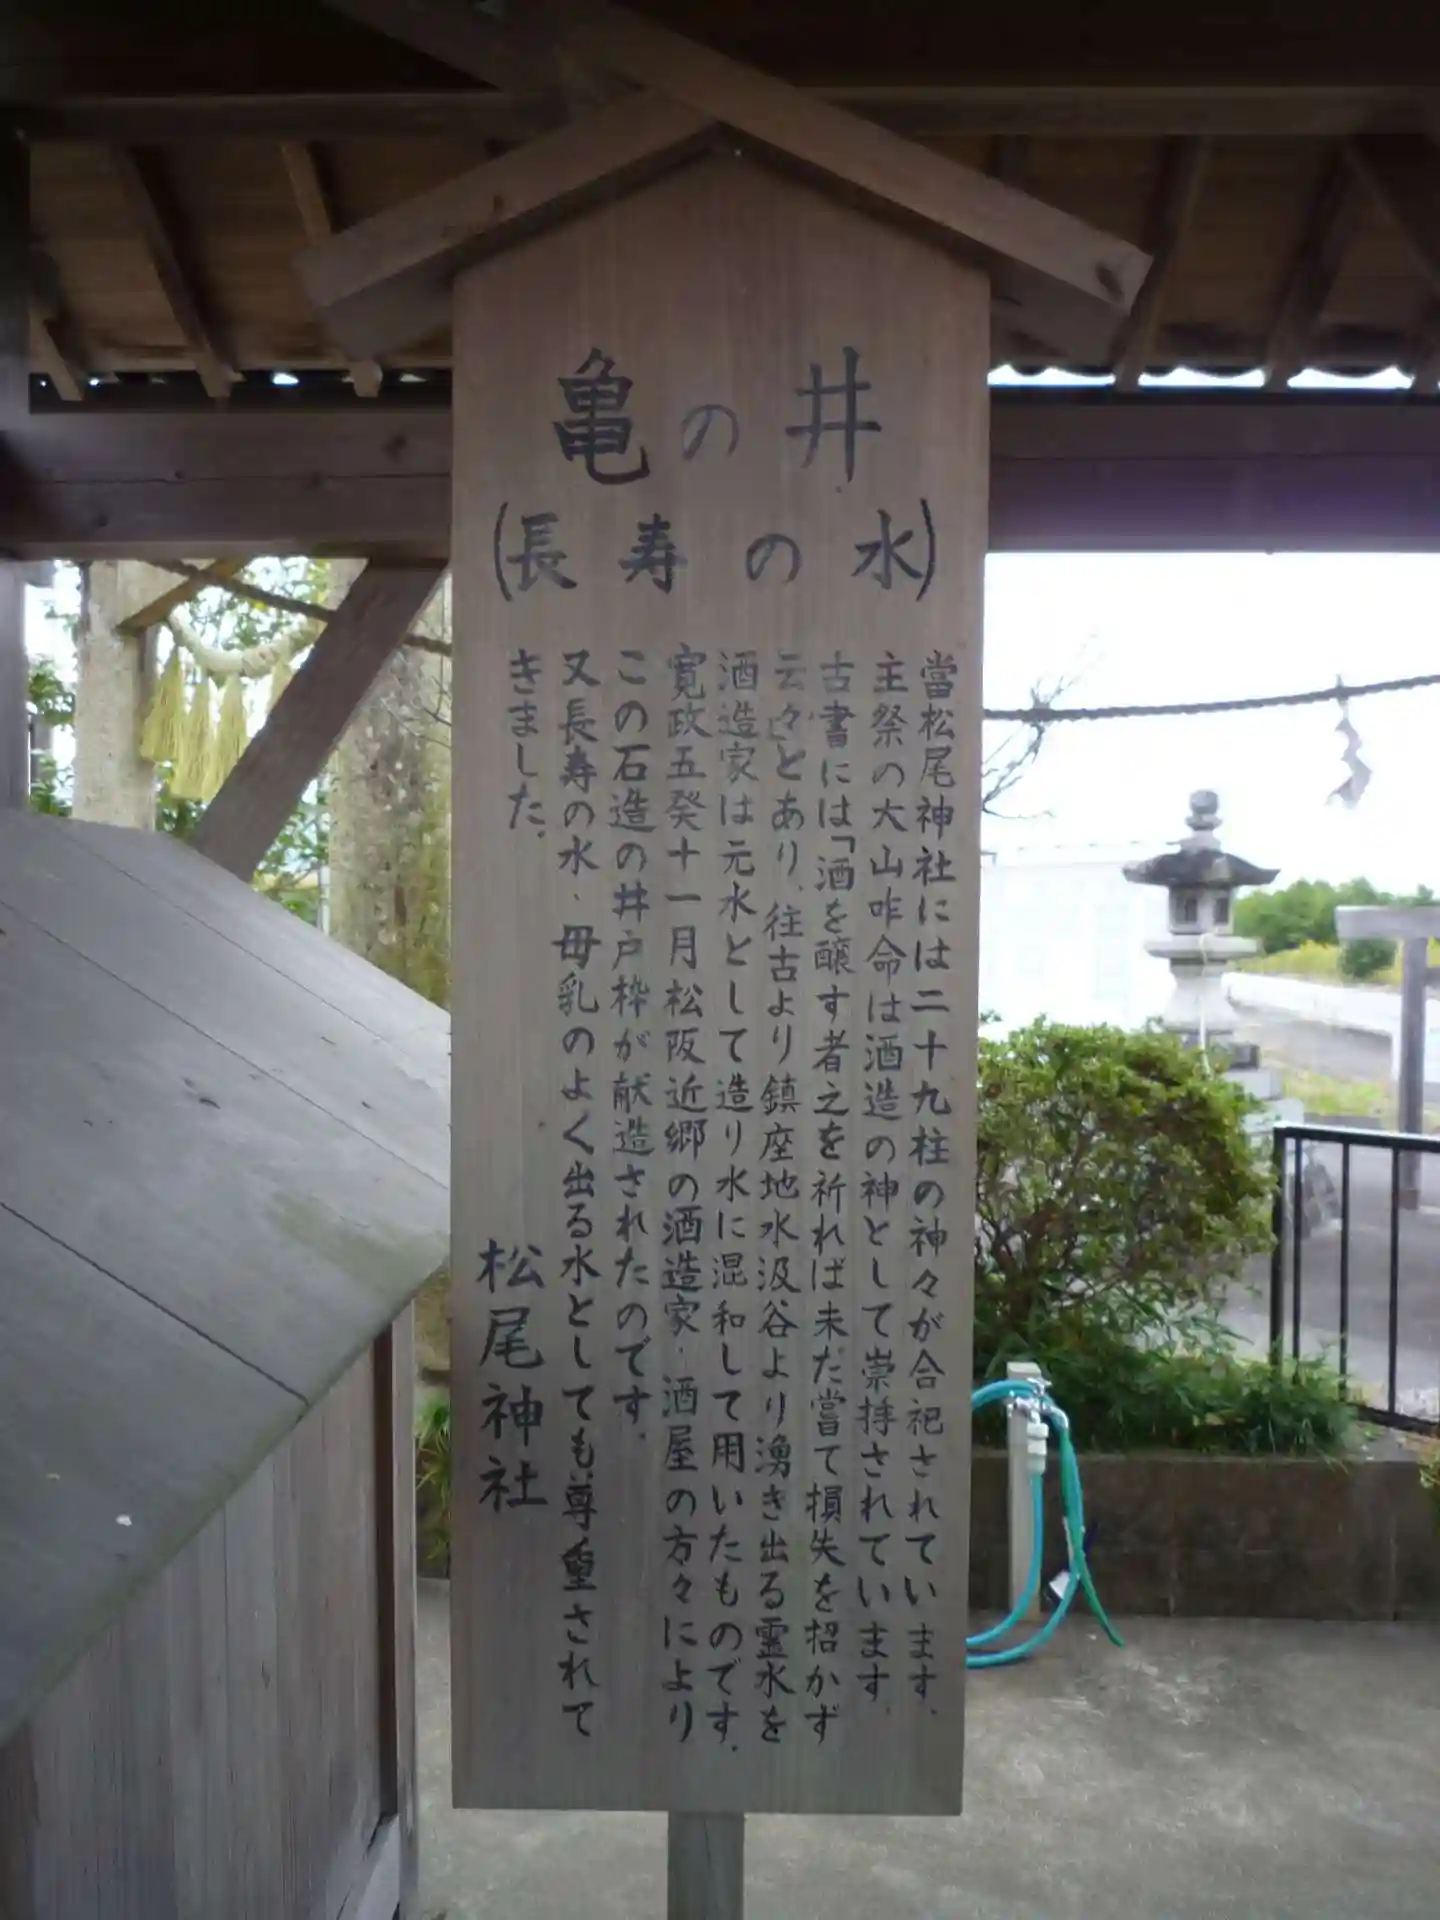 亀の井
(長寿の水)
當松尾神社には二十九柱の神々が合祀されています.
主祭の大山咋命は酒造の神として崇拝されています.
古書には「酒を醸す者之を祈れば未だ嘗て損失を招かず
云々」とあり、往古より鎮座地水汲谷より湧き出る霊水を
酒造家は元水として造り水に混和して用いたものです.
寛政五癸十一月松阪近郷の酒造家・酒屋の方々により
この石造の井戸枠が献造されたのです.
又長寿の水・母乳のよく出る水としても尊重されて
きました.
松尾神社